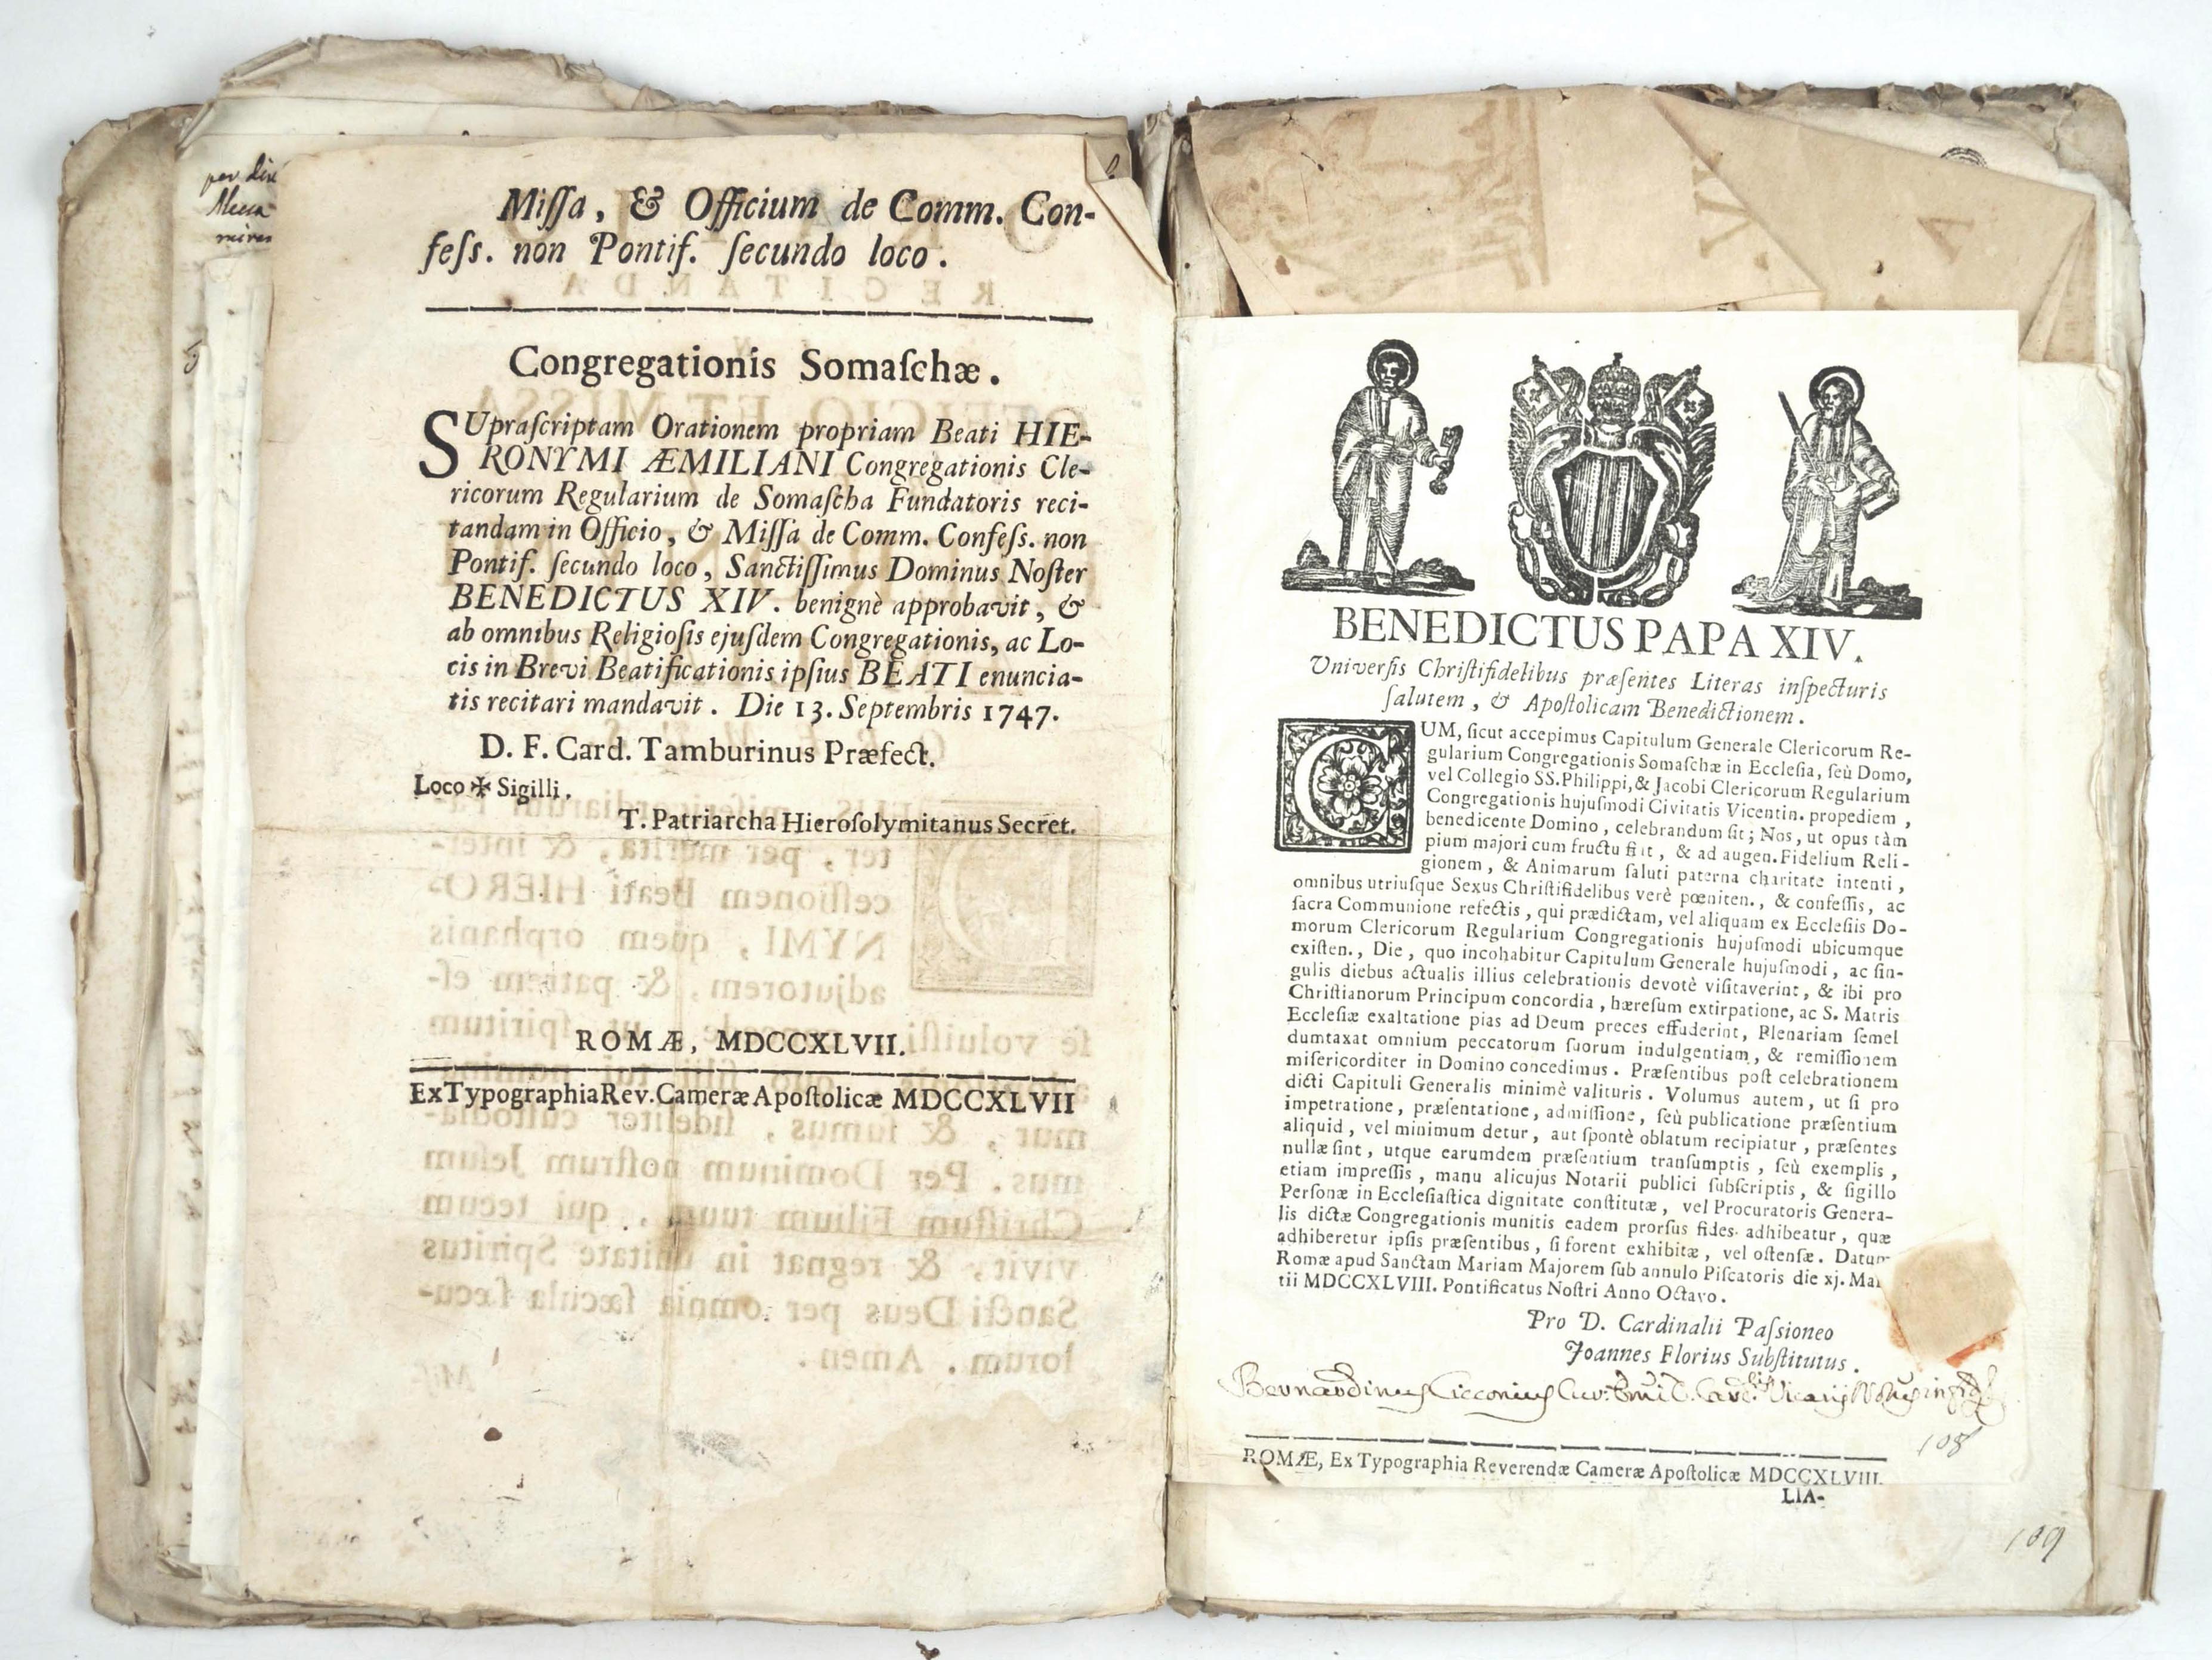 per dire
Missa, & Officium de Comm. Con-
fess. non Pontif. secundo loco.
Congregationis Somaschæ.
SUprascriptam Orationem propriam Beati HIE-
RONYMI ÆMILIANI Congregationis Cle-
ricorum Regularium de Somascha Fundatoris reci-
tandam in Officio, & Missa de Comm. Confess. non
Pontif. secundo loco, Sanctissimus Dominus Noster
BENEDICTUS XIV. benignè approbavit, &
ab omnibus Religiosis ejusdem Congregationis, ac Lo-
cis in Brevi Beatificationis ipsius BEATI enuncia-
tis recitari mandavit. Die 13. Septembris 1747.
D. F. Card. Tamburinus Præfect.
Loco ✠ Sigilli.
T. Patriarcha Hierosolymitanus Secret.
ROMÆ, MDCCXLVII.
Ex Typographia Rev. Cameræ Apostolicæ MDCCXLVII
BENEDICTUS PAPA XIV.
Universis Christifidelibus præsentes Literas inspecturis
salutem, & Apostolicam Benedictionem.
CUM, sicut accepimus Capitulum Generale Clericorum Re-
gularium Congregationis Somaschæ in Ecclesia, seù Domo,
vel Collegio SS. Philippi, & Jacobi Clericorum Regularium
Congregationis hujusmodi Civitatis Vicentin. propediem,
benedicente Domino, celebrandum sit; Nos, ut opus tàm
pium majori cum fructu fiat, & ad augen. Fidelium Reli-
gionem, & Animarum saluti paterna charitate intenti,
omnibus utriusque Sexus Christifidelibus verè pœniten., & confessis, ac
sacra Communione refectis, qui prædictam, vel aliquam ex Ecclesiis Do-
morum Clericorum Regularium Congregationis hujusmodi ubicumque
existen., Die, quo incohabitur Capitulum Generale hujusmodi, ac sin-
gulis diebus actualis illius celebrationis devotè visitaverint, & ibi pro
Christianorum Principum concordia, hæresum extirpatione, ac S. Matris
Ecclesiæ exaltatione pias ad Deum preces effuderint, Plenariam semel
dumtaxat omnium peccatorum suorum indulgentiam, & remissionem
misericorditer in Domino concedimus. Præsentibus post celebrationem
dicti Capituli Generalis minimè valituris. Volumus autem, ut si pro
impetratione, præsentatione, admissione, seù publicatione præsentium
aliquid, vel minimum detur, aut spontè oblatum recipiatur, præsentes
nullæ sint, utque earumdem præsentium transumptis, seù exemplis,
etiam impressis, manu alicujus Notarii publici subscriptis, & sigillo
Personæ in Ecclesiastica dignitate constitutæ, vel Procuratoris Genera-
lis dictæ Congregationis munitis eadem prorsus fides adhibeatur, quæ
adhiberetur ipsis præsentibus, si forent exhibitæ, vel ostensæ. Datum
Romæ apud Sanctam Mariam Majorem sub annulo Piscatoris die xj. Mar
tii MDCCXLVIII. Pontificatus Nostri Anno Octavo.
Pro D. Cardinali Passioneo
Joannes Florius Substitutus.
Bernardinus Cicconius
108
ROMÆ, Ex Typographia Reverendæ Cameræ Apostolicæ MDCCXLVIII.
LIA-
109